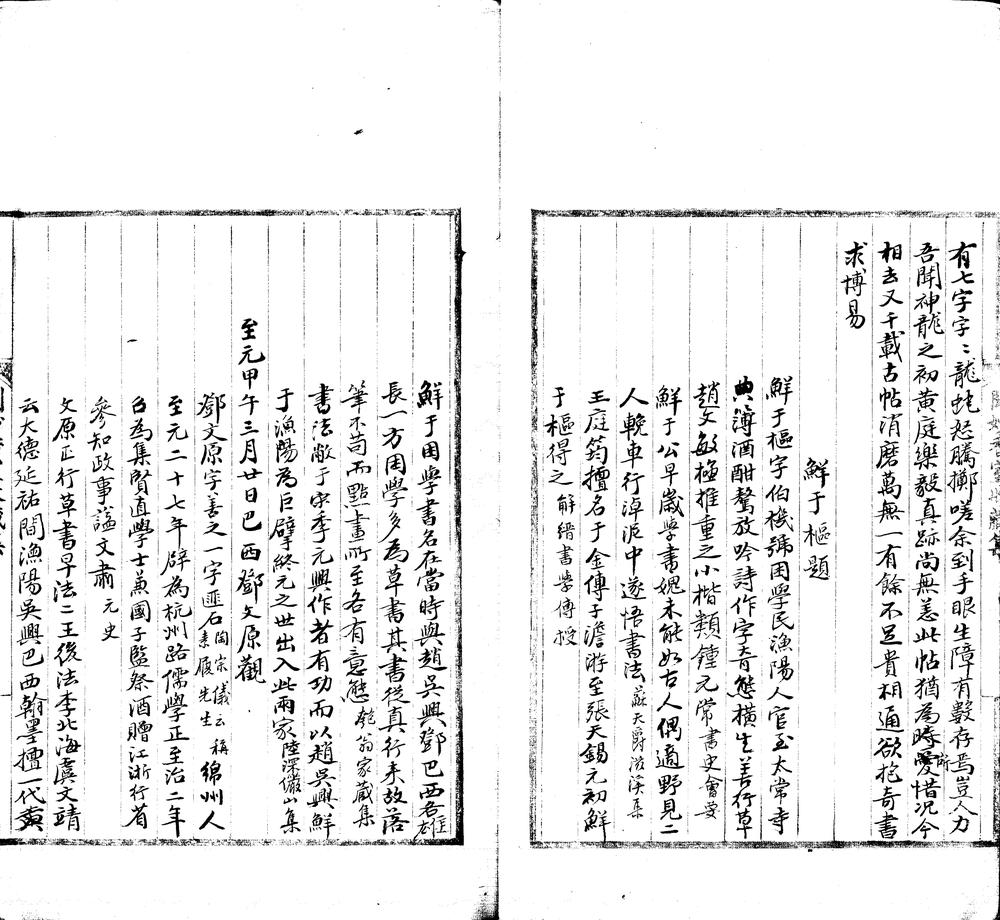 有七字字〻龍蛇怒騰擲嗟余到手眼生障有數存焉豈人力
吾聞神龍之初黃庭樂毅真跡尚無恙此帖猶為時所愛惜況今
相去又千載古帖消磨萬無一有餘不足貴相通欲抱奇書
求博易
鮮于樞題
鮮于樞字伯機號困學民漁陽人官至太常寺
典簿酒酣驁放吟詩作字奇態橫生善行草
趙文敏極推重之小楷類鍾元常書史會要
鮮于公早歲學書媿未能如古人偶適野見二
人輓車行淖泥中遂悟書法蘇天爵滋溪集
王庭筠擅名于金傳子澹游至張天錫元初鮮
于樞得之解縉書學傳授
鮮于困學書名在當時與趙吳興鄧巴西各雄
長一方困學多為草書其書從真行來故落
筆不苟而點畫所至各有意態匏翁家藏集
書法敝于宋季元興作者有功而以趙吳興鮮
于漁陽為巨擘終元之世出入此兩家陸深儼山集
至元甲午三月廿日巴西鄧文原觀
鄧文原字善之一字匪石陶宗儀云稱素履先生綿州人
至元二十七年辟為杭州路儒學正至治二年
召為集賢直學士兼國子監祭酒贈江浙行省
參知政事諡文肅元史
文原正行草書早法二王後法李北海虞文靖
云大德延祐間漁陽吳興巴西翰墨擅一代黃